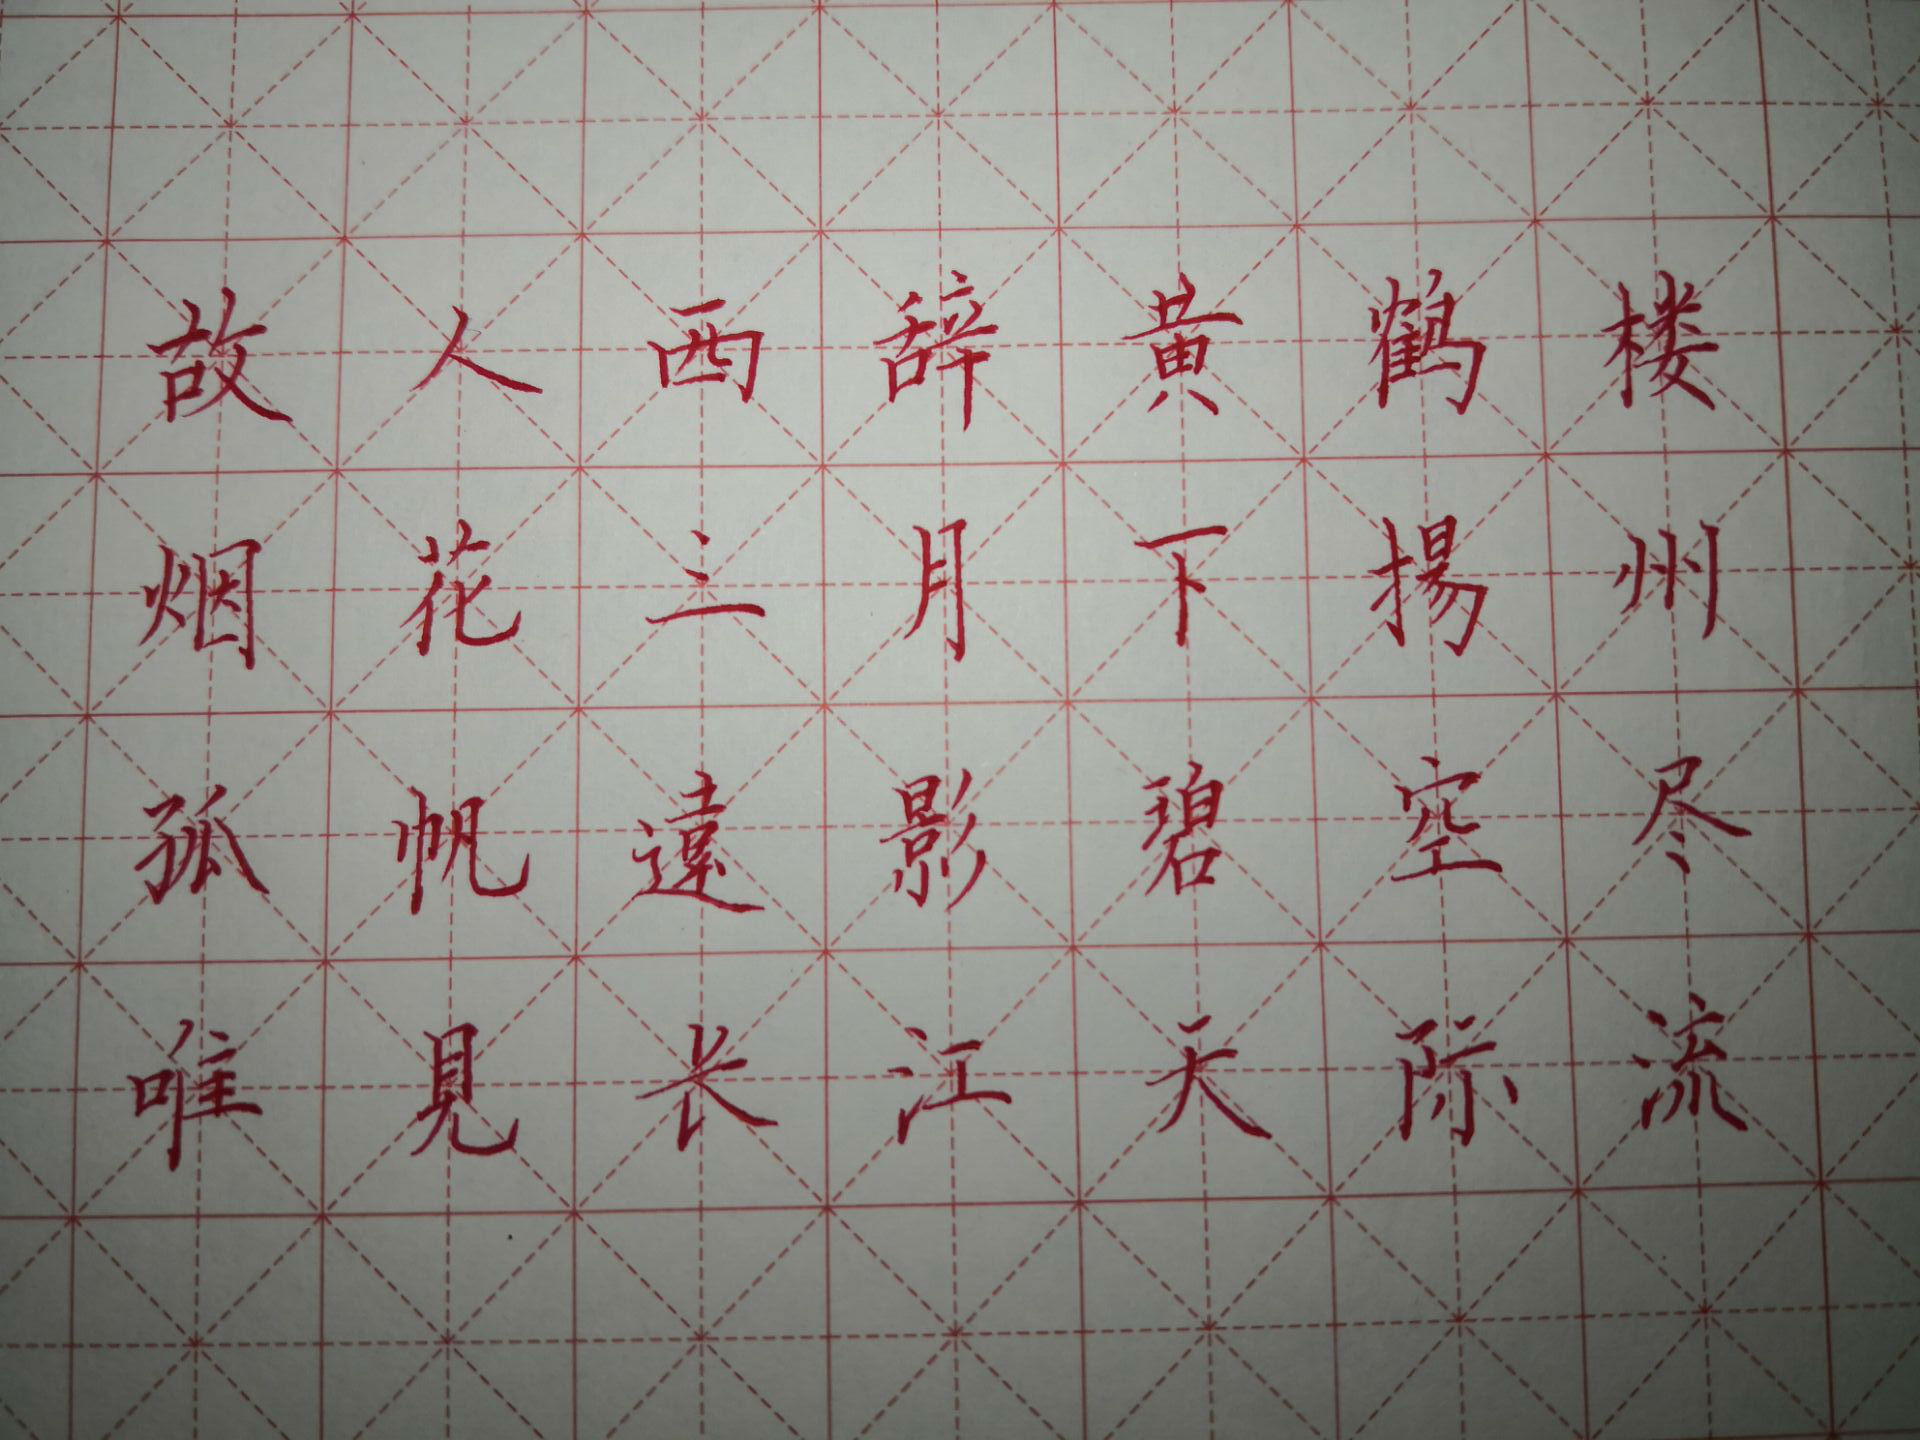 故人西辞黄鹤楼
烟花三月下揚州
孤帆遠影碧空尽
唯見长江天际流